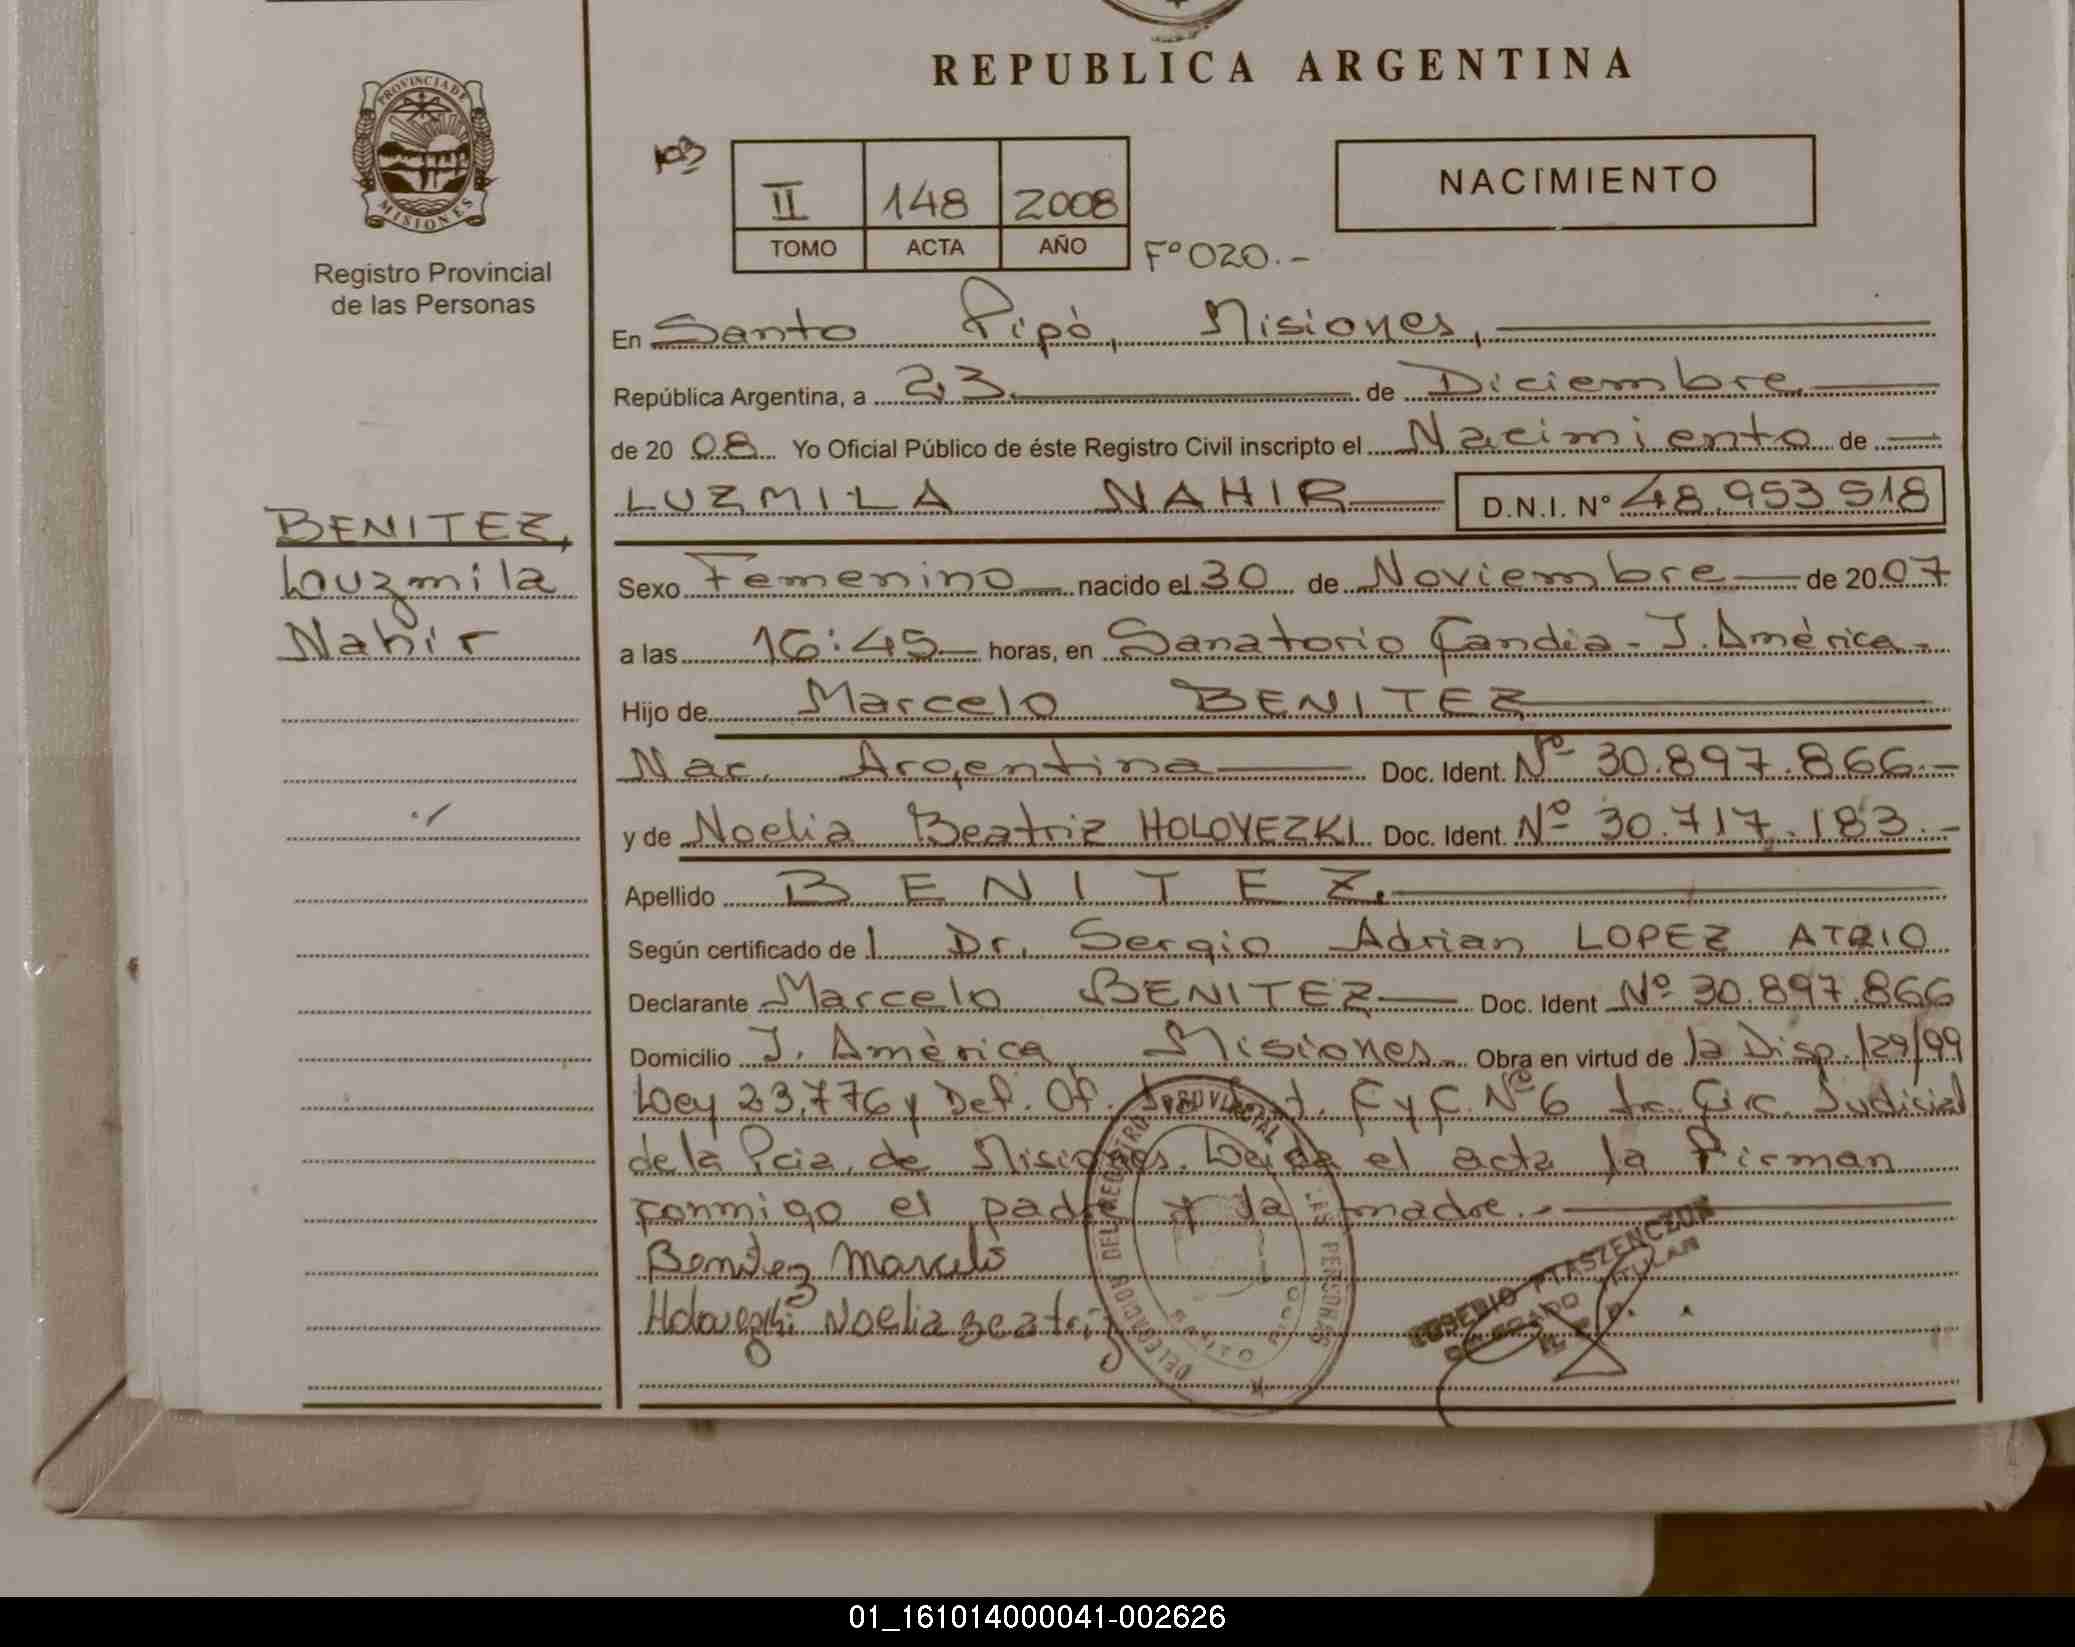 REPUBLICA ARGENTINA
PROVINCIA DE
MISIONES
Registro Provincial
de las Personas
103
II 148 2008
TOMO ACTA AÑO
Fº 020.-
NACIMIENTO
En Santo Pipó, Misiones,
República Argentina, a 23 de Diciembre
de 20 08 Yo Oficial Público de éste Registro Civil inscripto el Nacimiento de
LUZMILA NAHIR D.N.I. Nº 48.953518
BENITEZ,
Luzmila
Nahir
Sexo Femenino nacido el 30 de Noviembre de 20 07
a las 16:45 horas, en Sanatorio Candia - J. América.-
Hijo de Marcelo BENITEZ
Nac. Argentina Doc. Ident. Nº 30.897.866.-
y de Noelia Beatriz HOLOVEZKI Doc. Ident. Nº 30.717.183.-
Apellido BENITEZ.
Según certificado de l Dr. Sergio Adrian LOPEZ ATRIO
Declarante Marcelo BENITEZ Doc. Ident Nº 30.897.866
Domicilio J. América, Misiones. Obra en virtud de la Disp. 129/99
Ley 23.776 y Def. Of. C y C. Nº 6 Circ. Judicial
de la Pcia. de Misiones. Leida el acta la firman
conmigo el padre y la madre.-
Benitez Marcelo
Holovezki Noelia Beatriz
DELEGACION DEL REGISTRO PROVINCIAL PERSONAS
PTASZENCZUK
TITULAR
01_161014000041-002626